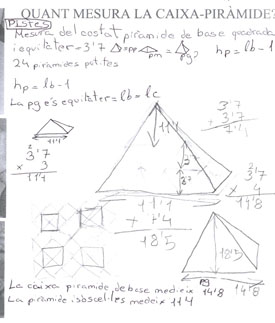 QUANT MESURA LA CAIXA-PIRÀMIDE?
PISTES
Mesura del costat piramide de base quadrada
i equilater = 3'7 pp pm = pg? hp = lb - 1
24 piramides petites
hp = lb - 1
La pg és equilater = lb = lc
11'1
3'7
3'7
11'1
3'7
x 3
11'1
3'7
3'7
x 4
14'8
11'1
+ 7'4
18'5
18'5
La caixa piramide de base medeix pg 14'8
14'8
La piramide isòsceles medeix 11'4